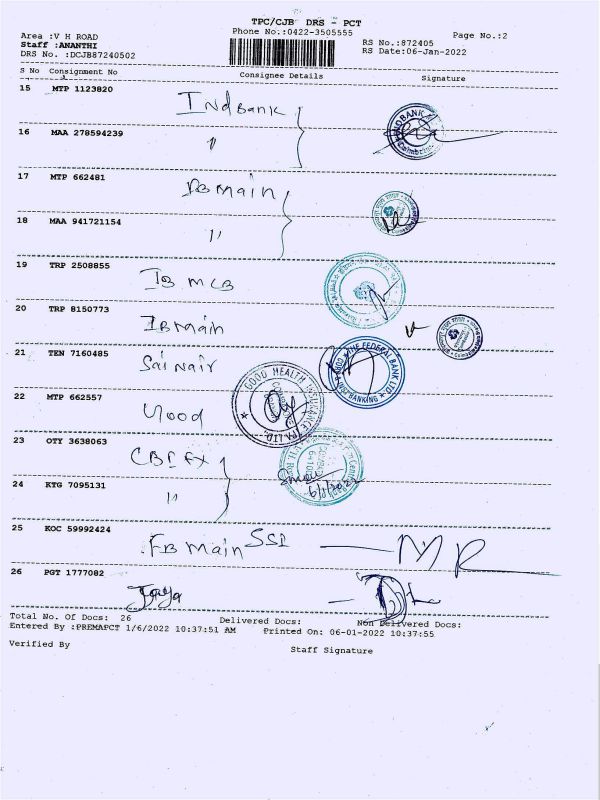 TPC/CJB DRS - PCT
Phone No.:0422-3505555
Page No.:2
Area :V H ROAD
Staff :ANANTHI
DRS No. :DCJB87240502
RS No.:872405
RS Date:06-Jan-2022
S No Consignment No Consignee Details Signature
15 MTP 1123820
IndBank
16 MAA 278594239
"
17 MTP 662481
IB main
18 MAA 941721154
"
19 TRP 2508855
IB MCB
20 TRP 8150773
IB main
21 TEN 7160485
Sai Nair
THE FEDERAL BANK LTD
22 MTP 662557
GOOD HEALTH INSURANCE
23 OTY 3638063
CBI FX
24 KTG 7095131
"
25 KOC 59992424
FB main SSI
26 PGT 1777082
Jaya
Total No. Of Docs: 26 Delivered Docs: Non Delivered Docs:
Entered By :PREMAPCT 1/6/2022 10:37:51 AM Printed On: 06-01-2022 10:37:55
Verified By
Staff Signature